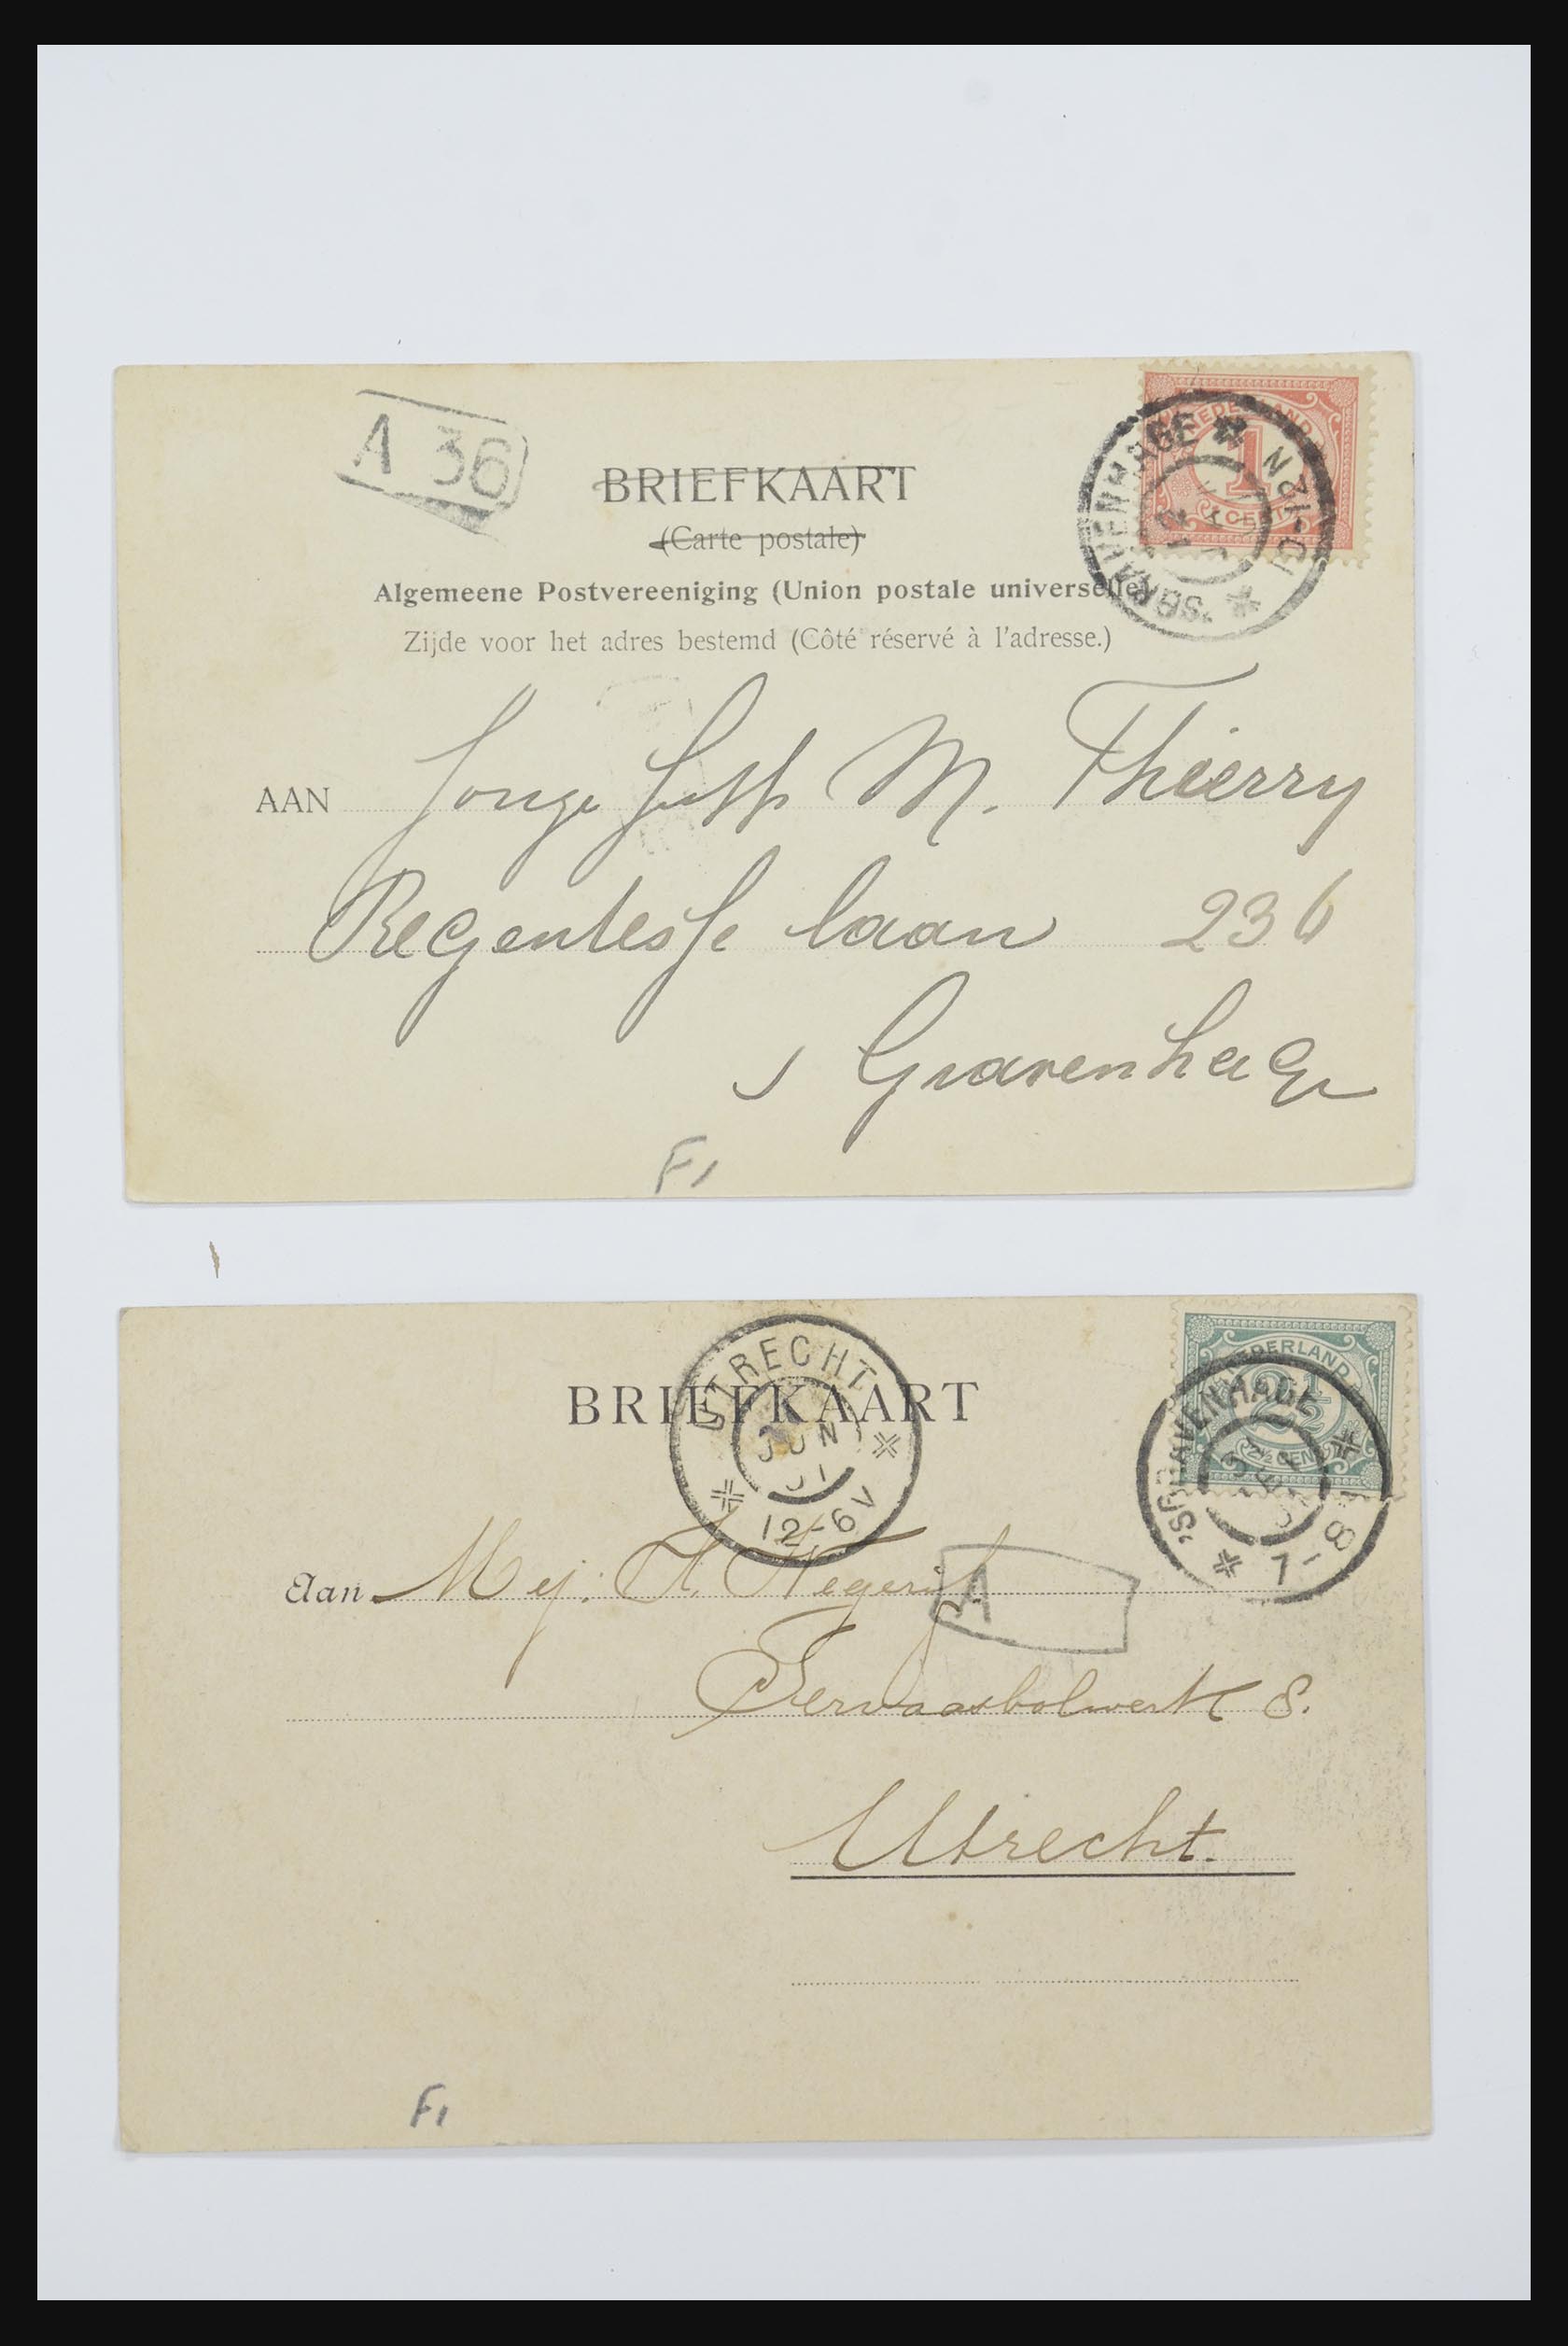 A 36
BRIEFKAART
(Carte postale)
Algemeene Postvereeniging (Union postale universelle)
Zijde voor het adres bestemd (Côté réservé à l'adresse.)
NEDERLAND
1
1 CENT
'SGRAVENHAGE
12-1N
AAN Jonge M. Thierry
Regentesse laan 236
s Gravenhage
F1
BRIEFKAART
UTRECHT
JUN
01
12-6V
NEDERLAND
2½
2½ CENT
'SGRAVENHAGE
7-8
Aan Mej. H. Hegerink
A
Servaasbolwerk 8.
Utrecht.
F1